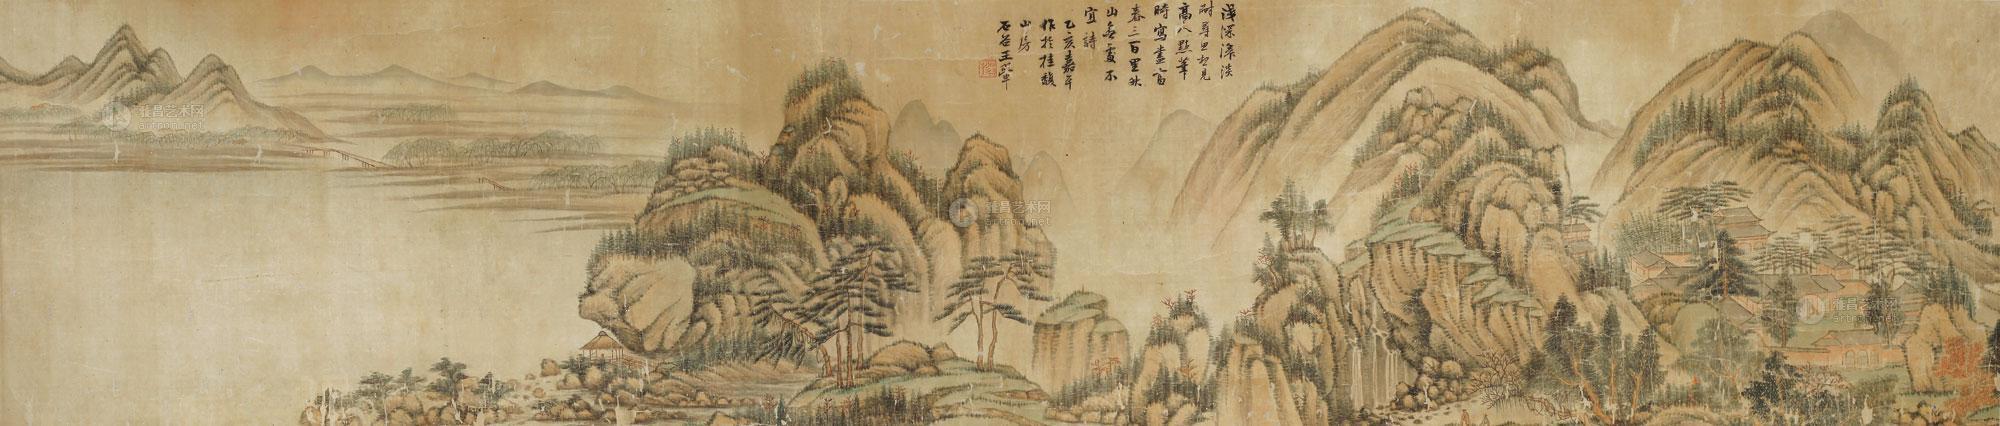 浅深濃淡
耐尋思想見
高人點筆
時寫盡富
春三百里秋
山無處不
宜詩
乙亥嘉平
作於桂馥
山房
石谷王翬
雅昌艺术网
artron.net
雅昌艺术网
artron.net
雅昌艺术网
artron.net